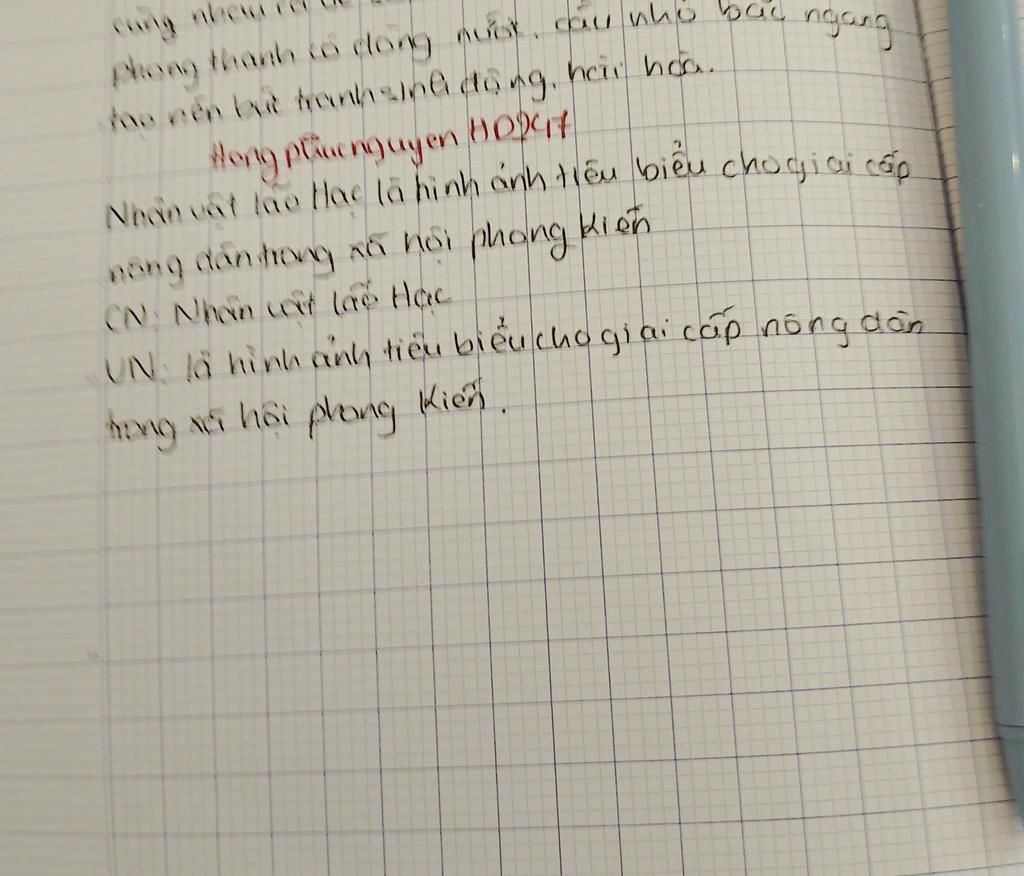 cùng nhau
phong thanh có dòng nước, cầu nhỏ bắc ngang
tạo nên bức tranh sinh động, hài hoà.
Hong phuc nguyen HD9X4T
Nhân vật lão Hạc là hình ảnh tiêu biểu cho giai cấp
nông dân trong xã hội phong kiến
CN: Nhân vật lão Hạc
VN: là hình ảnh tiêu biểu cho giai cấp nông dân
trong xã hội phong kiến.